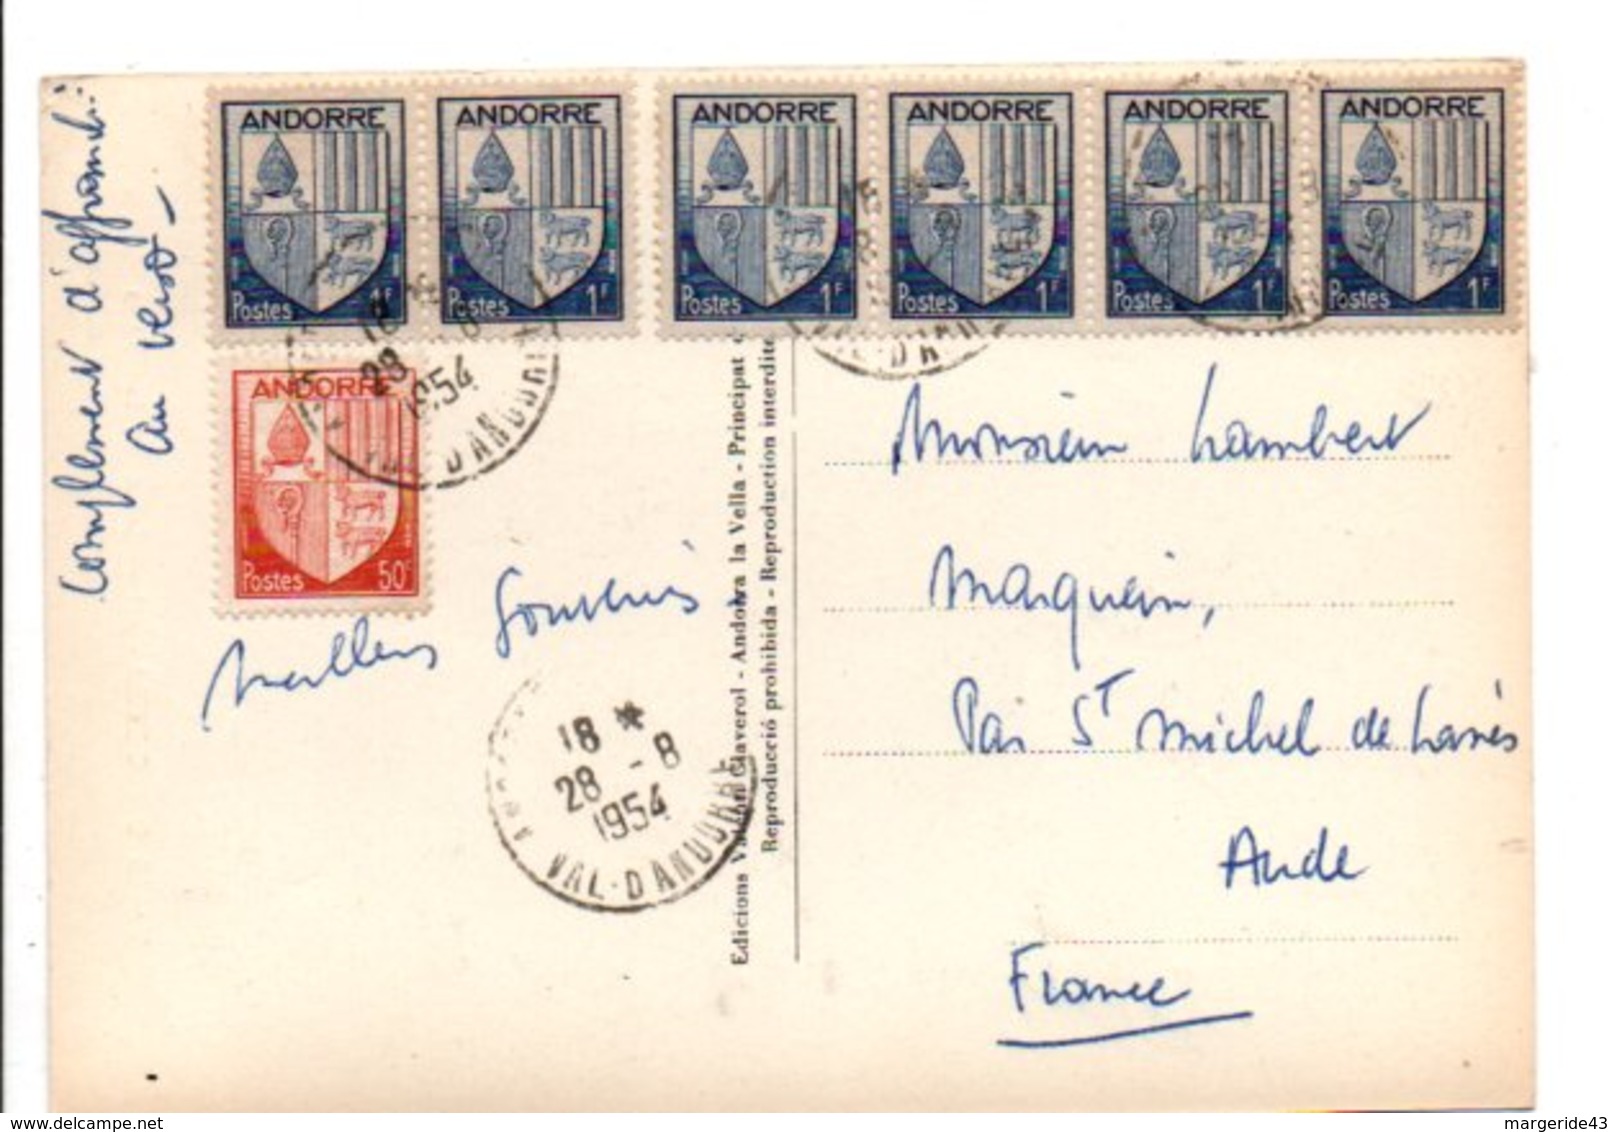 Complement d'affranchi:
au verso –
ANDORRE ANDORRE ANDORRE ANDORRE ANDORRE ANDORRE
Postes 1F Postes 1F Postes 1F Postes 1F Postes 1F Postes 1F
ANDORRE
Postes 50c
18
28
1954
VAL-D'ANDORRE
Meilleurs Souvenirs
18 *
28 -8
1954
VAL-D'ANDORRE
Edicions Claverol - Andorra la Vella - Principat
Reproducció prohibida - Reproduction interdite
Monsieur Lambert
Marquein,
Par St Michel de Lanès
Aude
France
margeride43